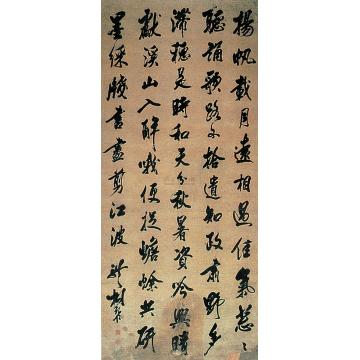 揚帆載月遠相過佳氣葱〻
聽誦歌路不拾遺知政肅野多
滯穗是時和天分秋暑資吟興晴
獻溪山入醉哦便捉蟾蜍共研
墨綵牋書盡剪江波